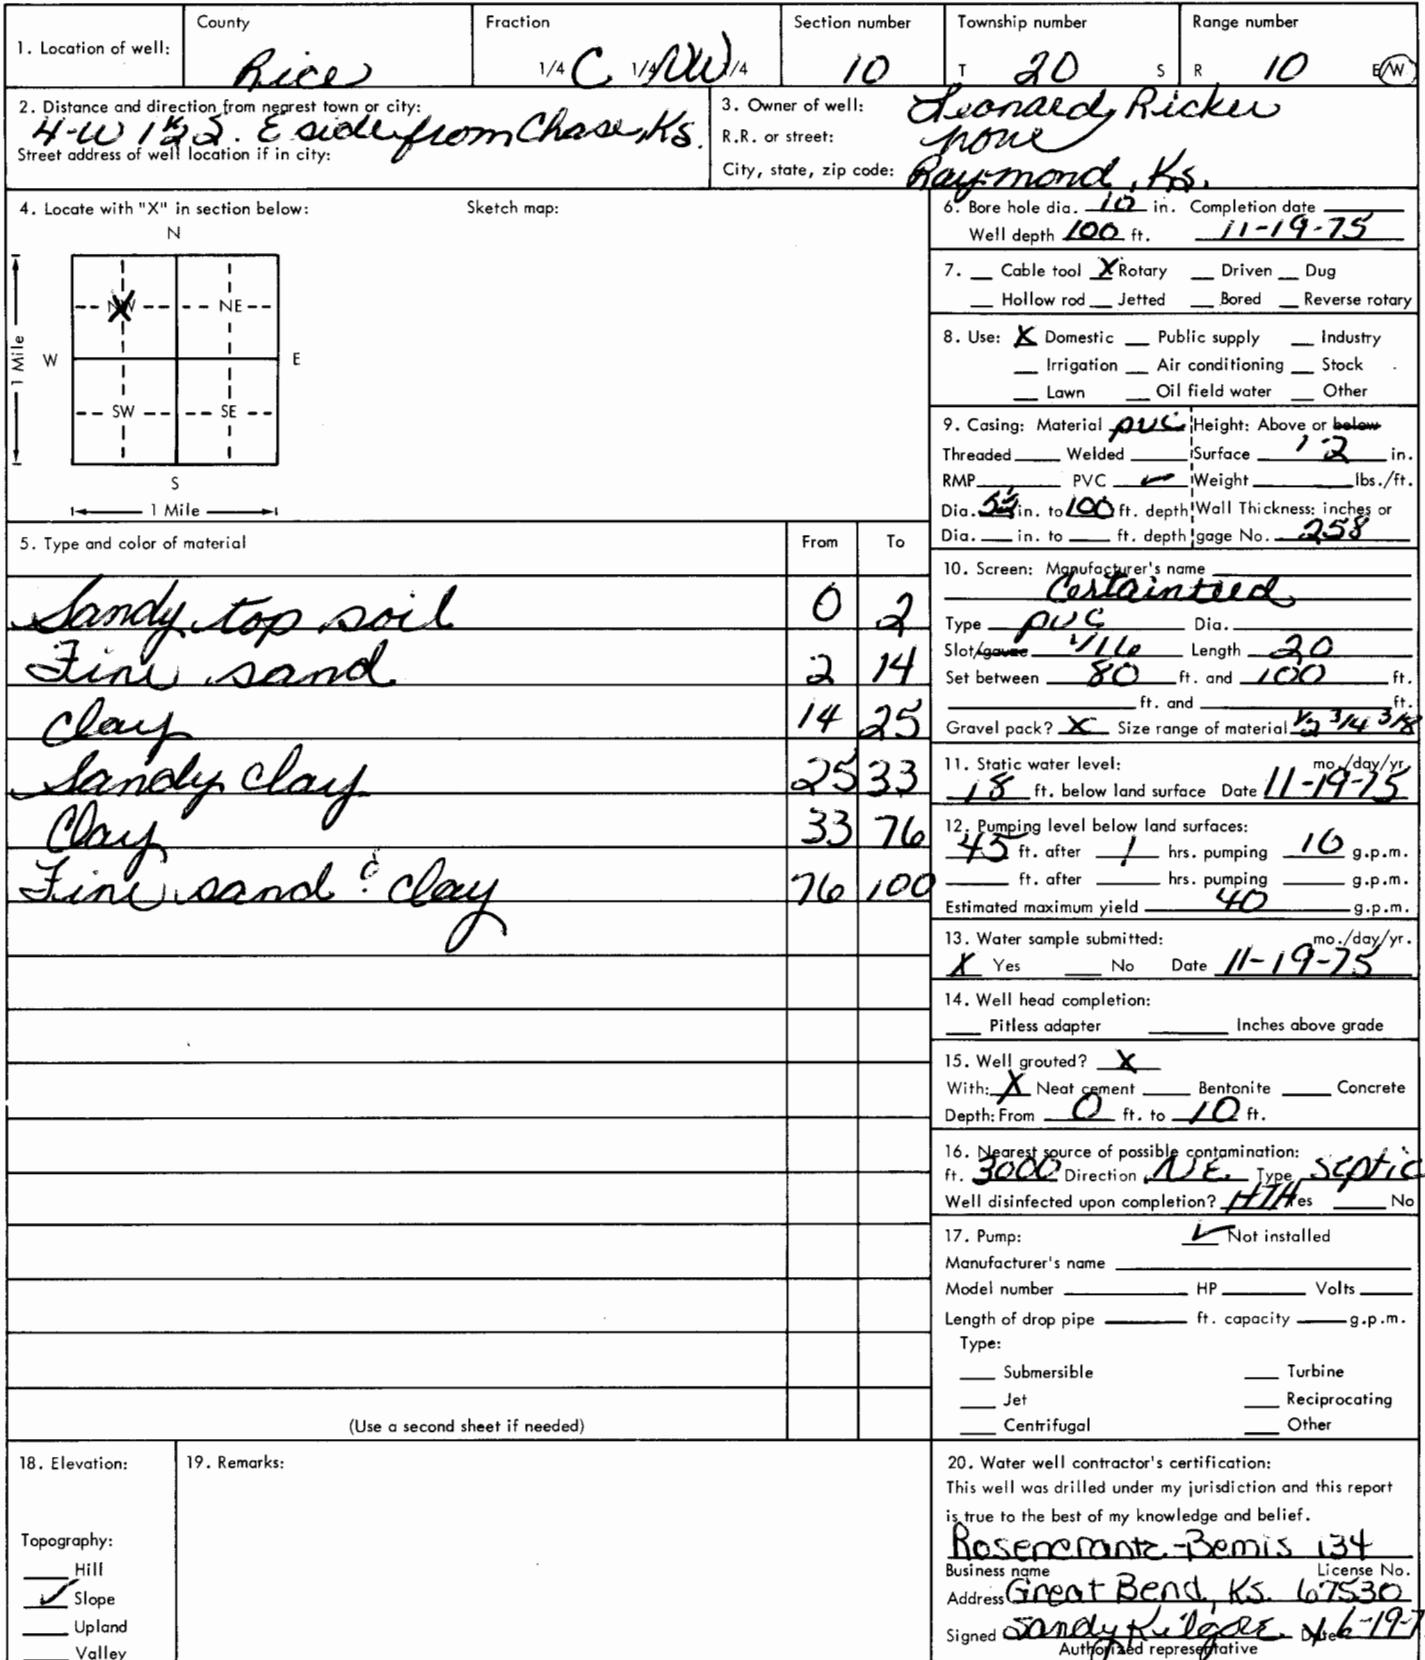 1. Location of well: County Rice Fraction 1/4 C 1/4 NW 1/4 Section number 10 Township number T 20 S Range number R 10 E/W
2. Distance and direction from nearest town or city:
4-W 1½ S. E side from Chase, Ks.
Street address of well location if in city:
3. Owner of well: Leonard Ricker
R.R. or street: none
City, state, zip code: Raymond, Ks.
4. Locate with "X" in section below: Sketch map:
N
NW NE
W E
1 Mile
SW SE
S
1 Mile
6. Bore hole dia. 10 in. Completion date
Well depth 100 ft. 11-19-75
7. Cable tool X Rotary Driven Dug
Hollow rod Jetted Bored Reverse rotary
8. Use: X Domestic Public supply Industry
Irrigation Air conditioning Stock
Lawn Oil field water Other
9. Casing: Material PVC Height: Above or below
Threaded Welded Surface 12 in.
RMP PVC ✓ Weight lbs./ft.
Dia. in. to 100 ft. depth Wall Thickness: inches or
Dia. in. to ft. depth gage No. 258
5. Type and color of material From To
Sandy top soil 0 2
Fine sand 2 14
Clay 14 25
Sandy clay 25 33
Clay 33 76
Fine sand & clay 76 100
(Use a second sheet if needed)
10. Screen: Manufacturer's name
Certainteed
Type PVC Dia.
Slot/gauze 1/16 Length 20
Set between 80 ft. and 100 ft.
ft. and ft.
Gravel pack? X Size range of material 1/2 3/4 3/8
11. Static water level: mo./day/yr.
18 ft. below land surface Date 11-19-75
12. Pumping level below land surfaces:
45 ft. after 1 hrs. pumping 10 g.p.m.
ft. after hrs. pumping g.p.m.
Estimated maximum yield 40 g.p.m.
13. Water sample submitted: mo./day/yr.
X Yes No Date 11-19-75
14. Well head completion:
Pitless adapter Inches above grade
15. Well grouted? X
With: X Neat cement Bentonite Concrete
Depth: From 0 ft. to 10 ft.
16. Nearest source of possible contamination:
ft. 3000 Direction N.E. Type Septic
Well disinfected upon completion? HTH Yes No
17. Pump: ✓ Not installed
Manufacturer's name
Model number HP Volts
Length of drop pipe ft. capacity g.p.m.
Type:
Submersible Turbine
Jet Reciprocating
Centrifugal Other
18. Elevation:
Topography:
Hill
✓ Slope
Upland
Valley
19. Remarks:
20. Water well contractor's certification:
This well was drilled under my jurisdiction and this report
is true to the best of my knowledge and belief.
Rosencrantz-Bemis 134
Business name License No.
Address Great Bend, Ks. 67530
Signed Sandy Kilgore Date
Authorized representative